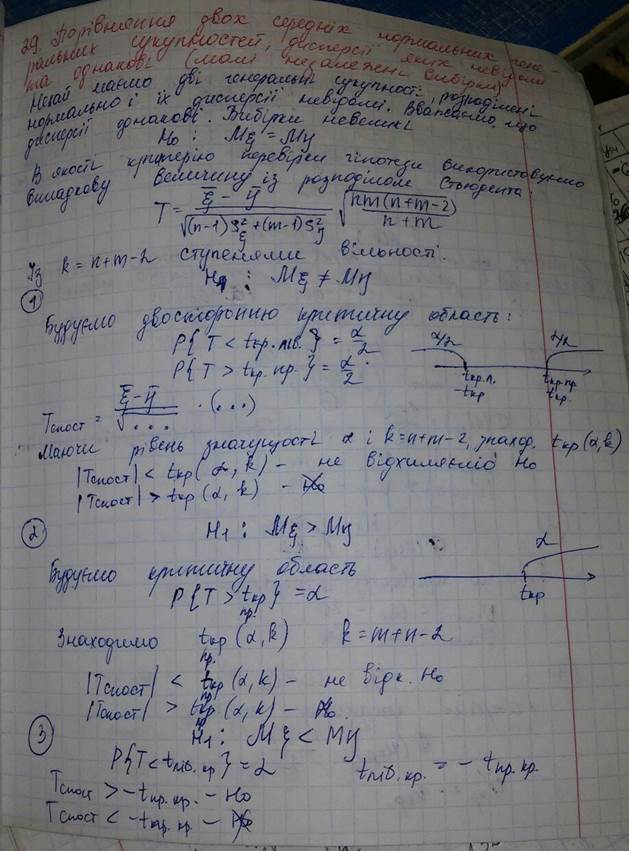 29. Порівняння двох середніх нормальних гене-
ральних сукупностей, дисперсії яких невідомі
та однакові (малі незалежні вибірки)
Нехай маємо дві генеральні сукупності розподілені
нормально і їх дисперсії невідомі. Вважаємо, що
дисперсії однакові. Вибірки невеликі
H₀ : Mξ = Mη
В якості критерію перевірки гіпотези використовуємо
випадкову величину із розподілом Стьюдента:
T = (ξ̄ - η̄) / √((n-1)S²ξ + (m-1)S²η) √(nm(n+m-2) / (n+m))
Із k = n+m-2 ступенями вільності.
① H₁ : Mξ ≠ Mη
Будуємо двосторонню критичну область:
P{T < tкр.лів.} = α/2
P{T > tкр.пр.} = α/2
α/2 α/2
tкр.л. tкр.пр
-tкр tкр.
Tспост = (ξ̄ - η̄) / √... · (...)
Маючи рівень значущості α і k=n+m-2, знаход. tкр(α,k)
|Tспост| < tкр(α, k) - не відхиляємо H₀
|Tспост| > tкр(α, k) - H₀
② H₁ : Mξ > Mη
Будуємо критичну область
P{T > tкр пр.} = α
α
tкр
Знаходимо tкр пр.(α, k) k = m+n-2
|Tспост| < tкр пр(α, k) - не відх. H₀
|Tспост| > tкр пр(α, k) - H₀
③ H₁ : Mξ < Mη
P{T < tлів.кр} = α tлів.кр. = - tпр.кр.
Tспост > -tпр.кр. - H₀
Tспост < -tпр.кр. - H₀